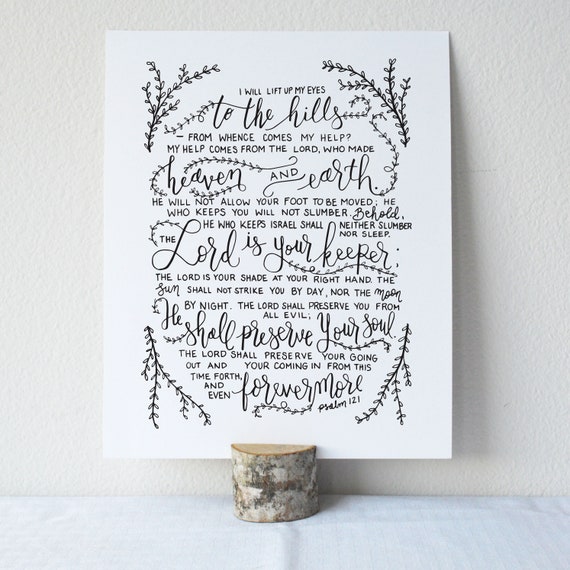 I WILL LIFT UP MY EYES
to the hills
— FROM WHENCE COMES MY HELP?
MY HELP COMES FROM THE LORD, WHO MADE
heaven AND earth.
HE WILL NOT ALLOW YOUR FOOT TO BE MOVED; HE
WHO KEEPS YOU WILL NOT SLUMBER. Behold,
HE WHO KEEPS ISRAEL SHALL NEITHER SLUMBER
NOR SLEEP.
THE Lord is your keeper;
THE LORD IS YOUR SHADE AT YOUR RIGHT HAND. THE
sun SHALL NOT STRIKE YOU BY DAY, NOR THE moon
BY NIGHT. THE LORD SHALL PRESERVE YOU FROM
ALL EVIL;
He shall preserve Your soul
THE LORD SHALL PRESERVE YOUR GOING
OUT AND YOUR COMING IN FROM THIS
TIME FORTH,
AND
EVEN forevermore
psalm 121